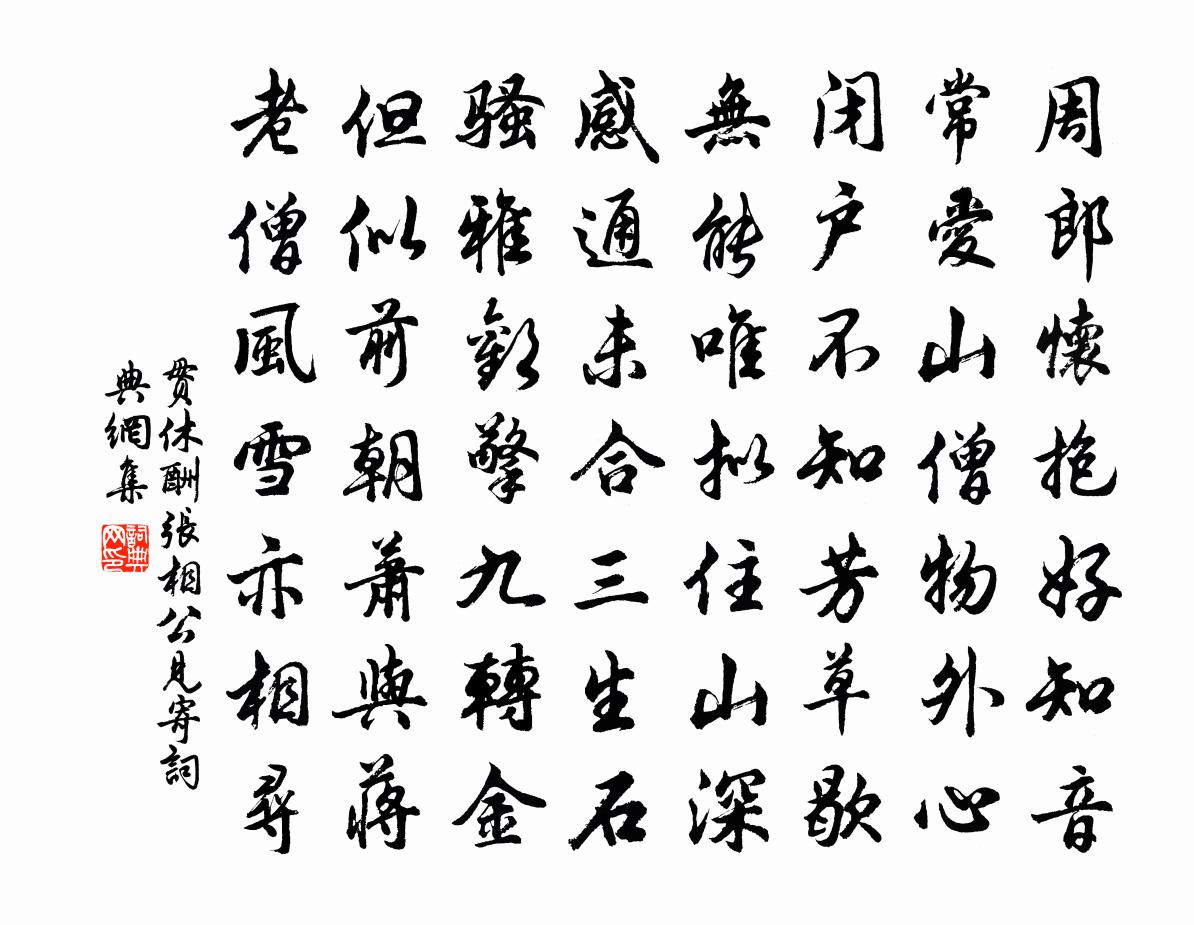 周郎懷抱好知音
常愛山僧物外心
閉户不知芳草歇
無能唯拟住山深
感通未合三生石
騷雅歡擎九轉金
但似前朝蕭與蔣
老僧風雪亦相尋
贯休酬張相公見寄詞
典網集
詞典
网印